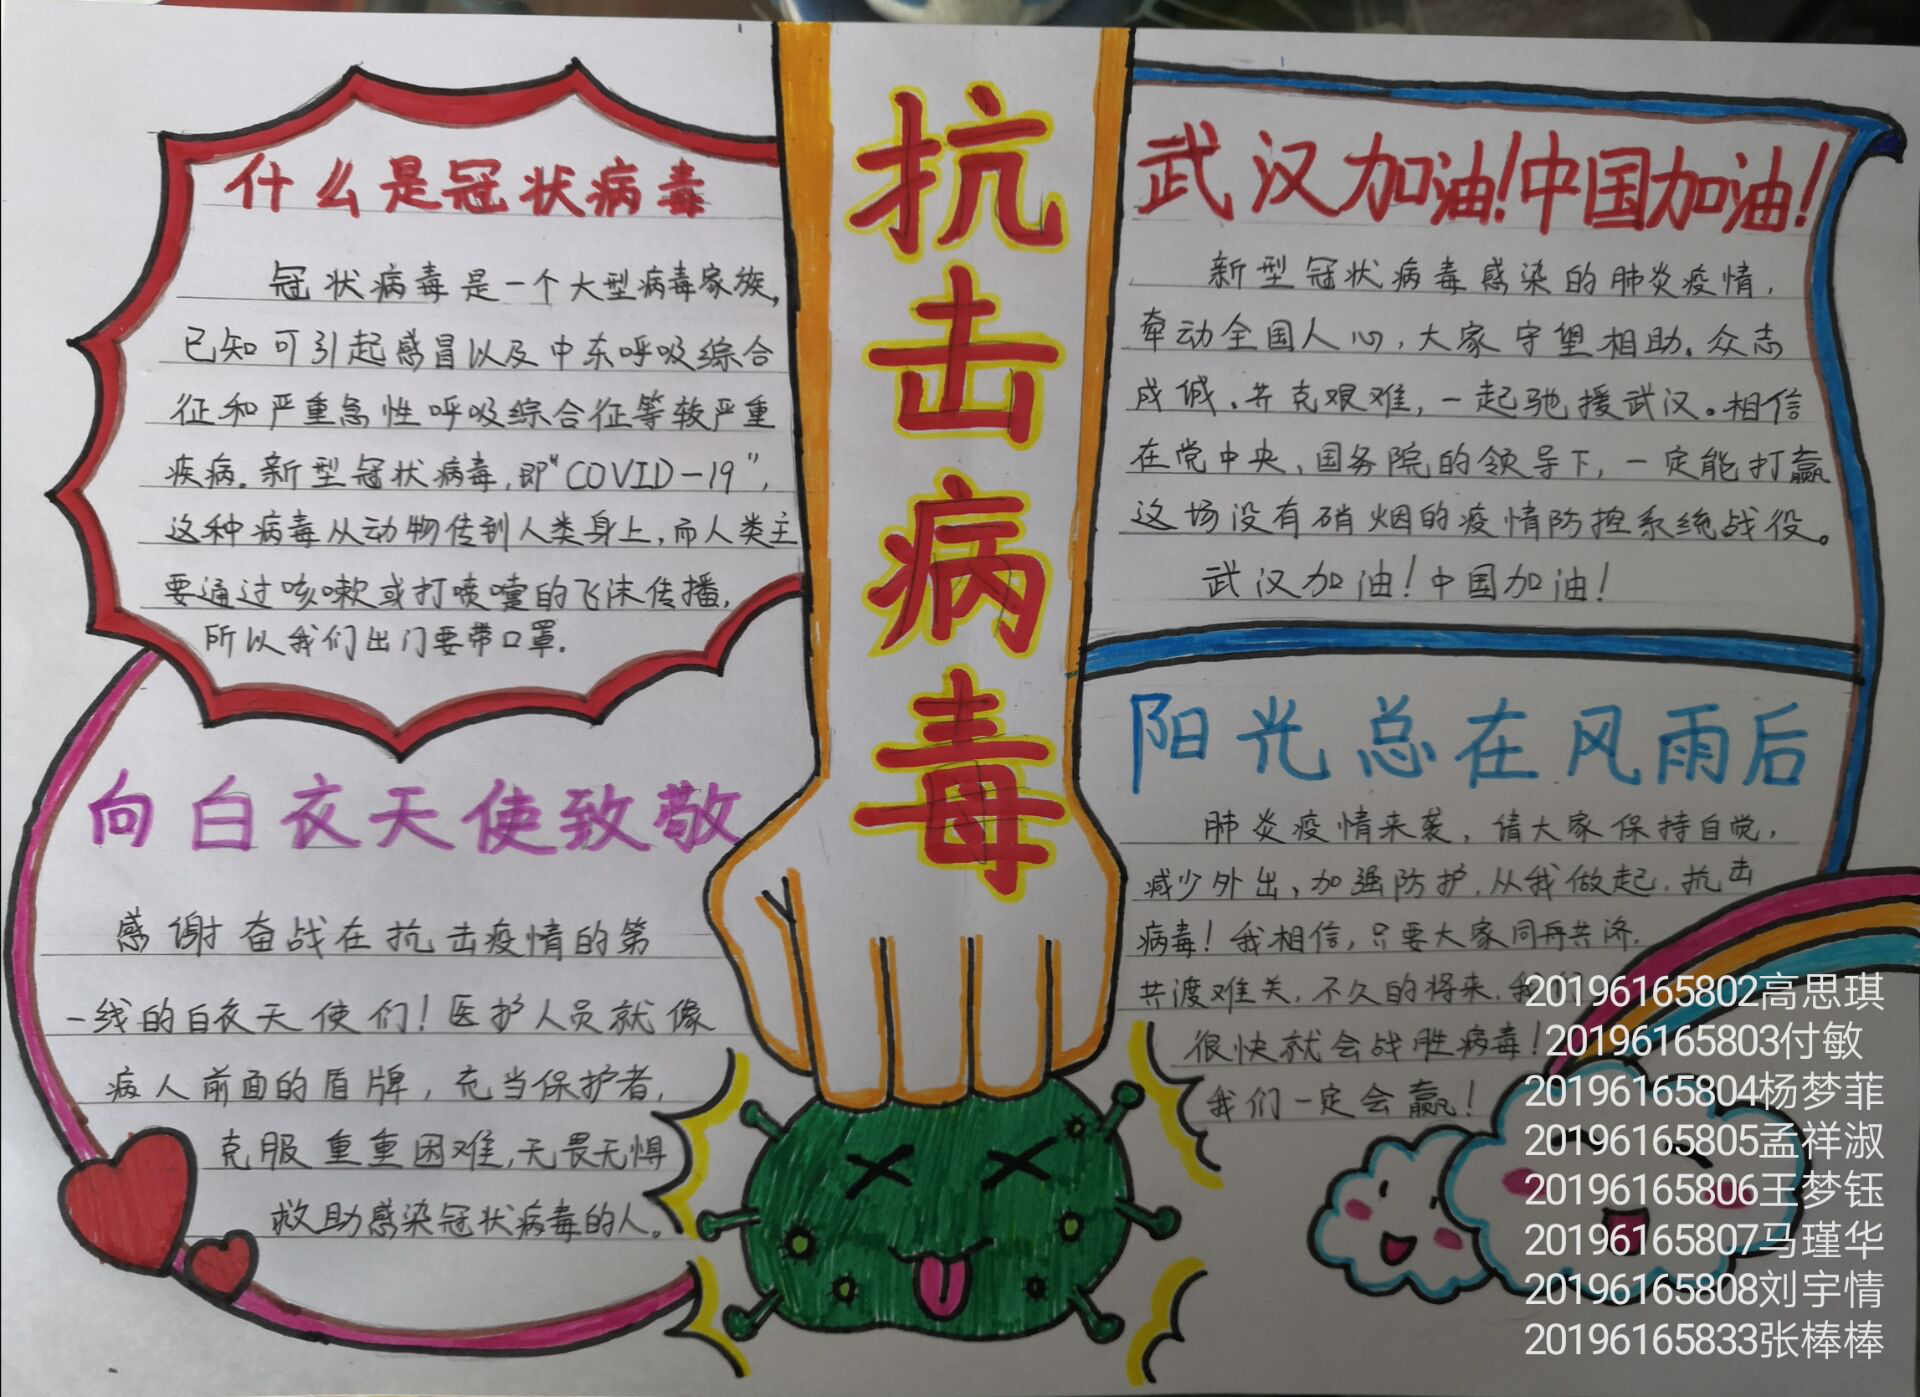 抗击病毒
什么是冠状病毒
冠状病毒是一个大型病毒家族,
已知可引起感冒以及中东呼吸综合
征和严重急性呼吸综合征等较严重
疾病.新型冠状病毒,即"COVID-19",
这种病毒从动物传到人类身上,而人类主
要通过咳嗽或打喷嚏的飞沫传播,
所以我们出门要带口罩.
武汉加油!中国加油!
新型冠状病毒感染的肺炎疫情,
牵动全国人心,大家守望相助、众志
成城、共克艰难,一起驰援武汉。相信
在党中央、国务院的领导下,一定能打赢
这场没有硝烟的疫情防控系统战役。
武汉加油!中国加油!
向白衣天使致敬
感谢奋战在抗击疫情的第
一线的白衣天使们!医护人员就像
病人前面的盾牌,充当保护者,
克服重重困难,无畏无惧
救助感染冠状病毒的人。
阳光总在风雨后
肺炎疫情来袭,请大家保持自觉,
减少外出、加强防护.从我做起.抗击
病毒!我相信,只要大家同舟共济.
共渡难关.不久的将来.我们
很快就会战胜病毒!
我们一定会赢!
20196165802高思琪
20196165803付敏
20196165804杨梦菲
20196165805孟祥淑
20196165806王梦钰
20196165807马瑾华
20196165808刘宇情
20196165833张棒棒